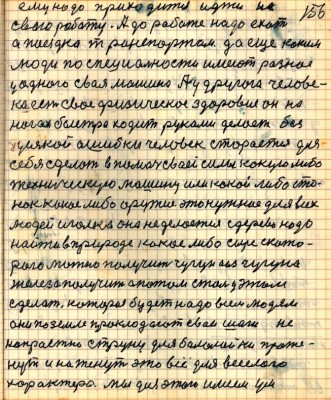 ему надо приходится идти на 156
свою работу. А до работе надо ехат
а поездка транспортом да еще каким
люди по специалности имеют разное
у одного своя машина А у другога челове-
ка ест свое физическое здоровия он на
ногах быстра ходит руками делает без
ошибки человек старается для
себя сделат в помач своей силы какую либо
техническую машину или какой либо ста-
нок какое либо оружие это нужное для всех
людей иголка она не делается с дерева надо
найти в природе какое либо сыре с като-
рого можно получит чугун а из чугуна
железа получит а потом стал у этом
сделат. которое будет надо всем людям
они по земле прокладают свои шаги не
напрастно струну для балалай ки протя-
нут и натянут это всё для веселого
характера. мы для этого имеем ум